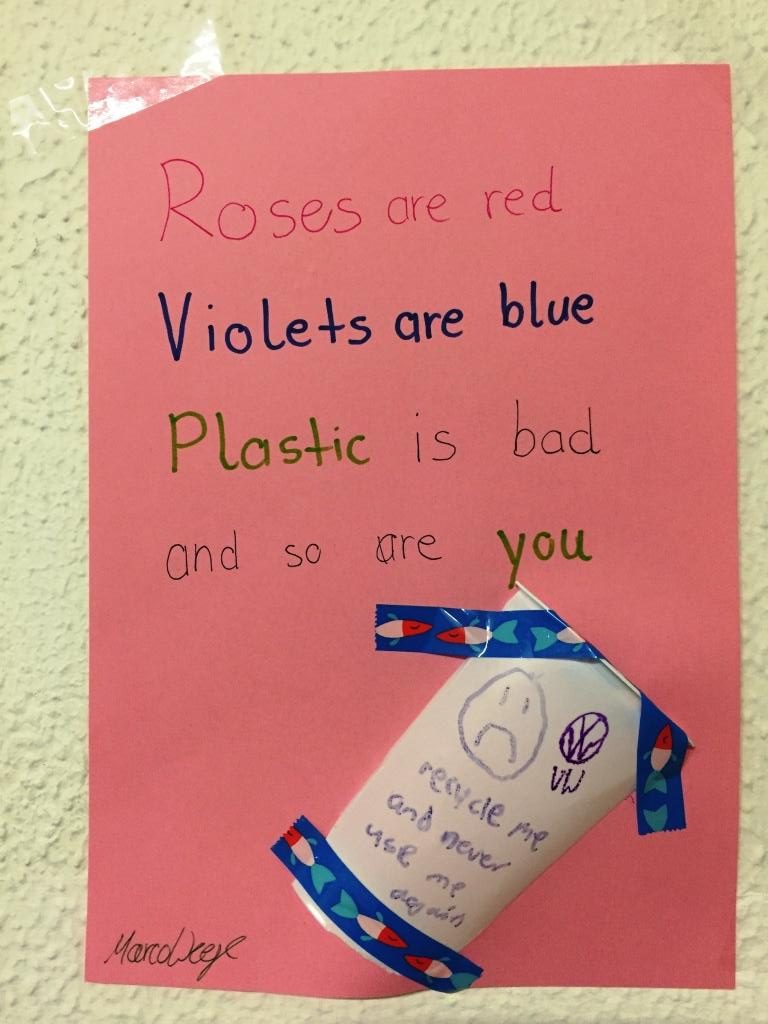 Roses are red
Violets are blue
Plastic is bad
and so are you
VW
recycle me
and never
use me
again